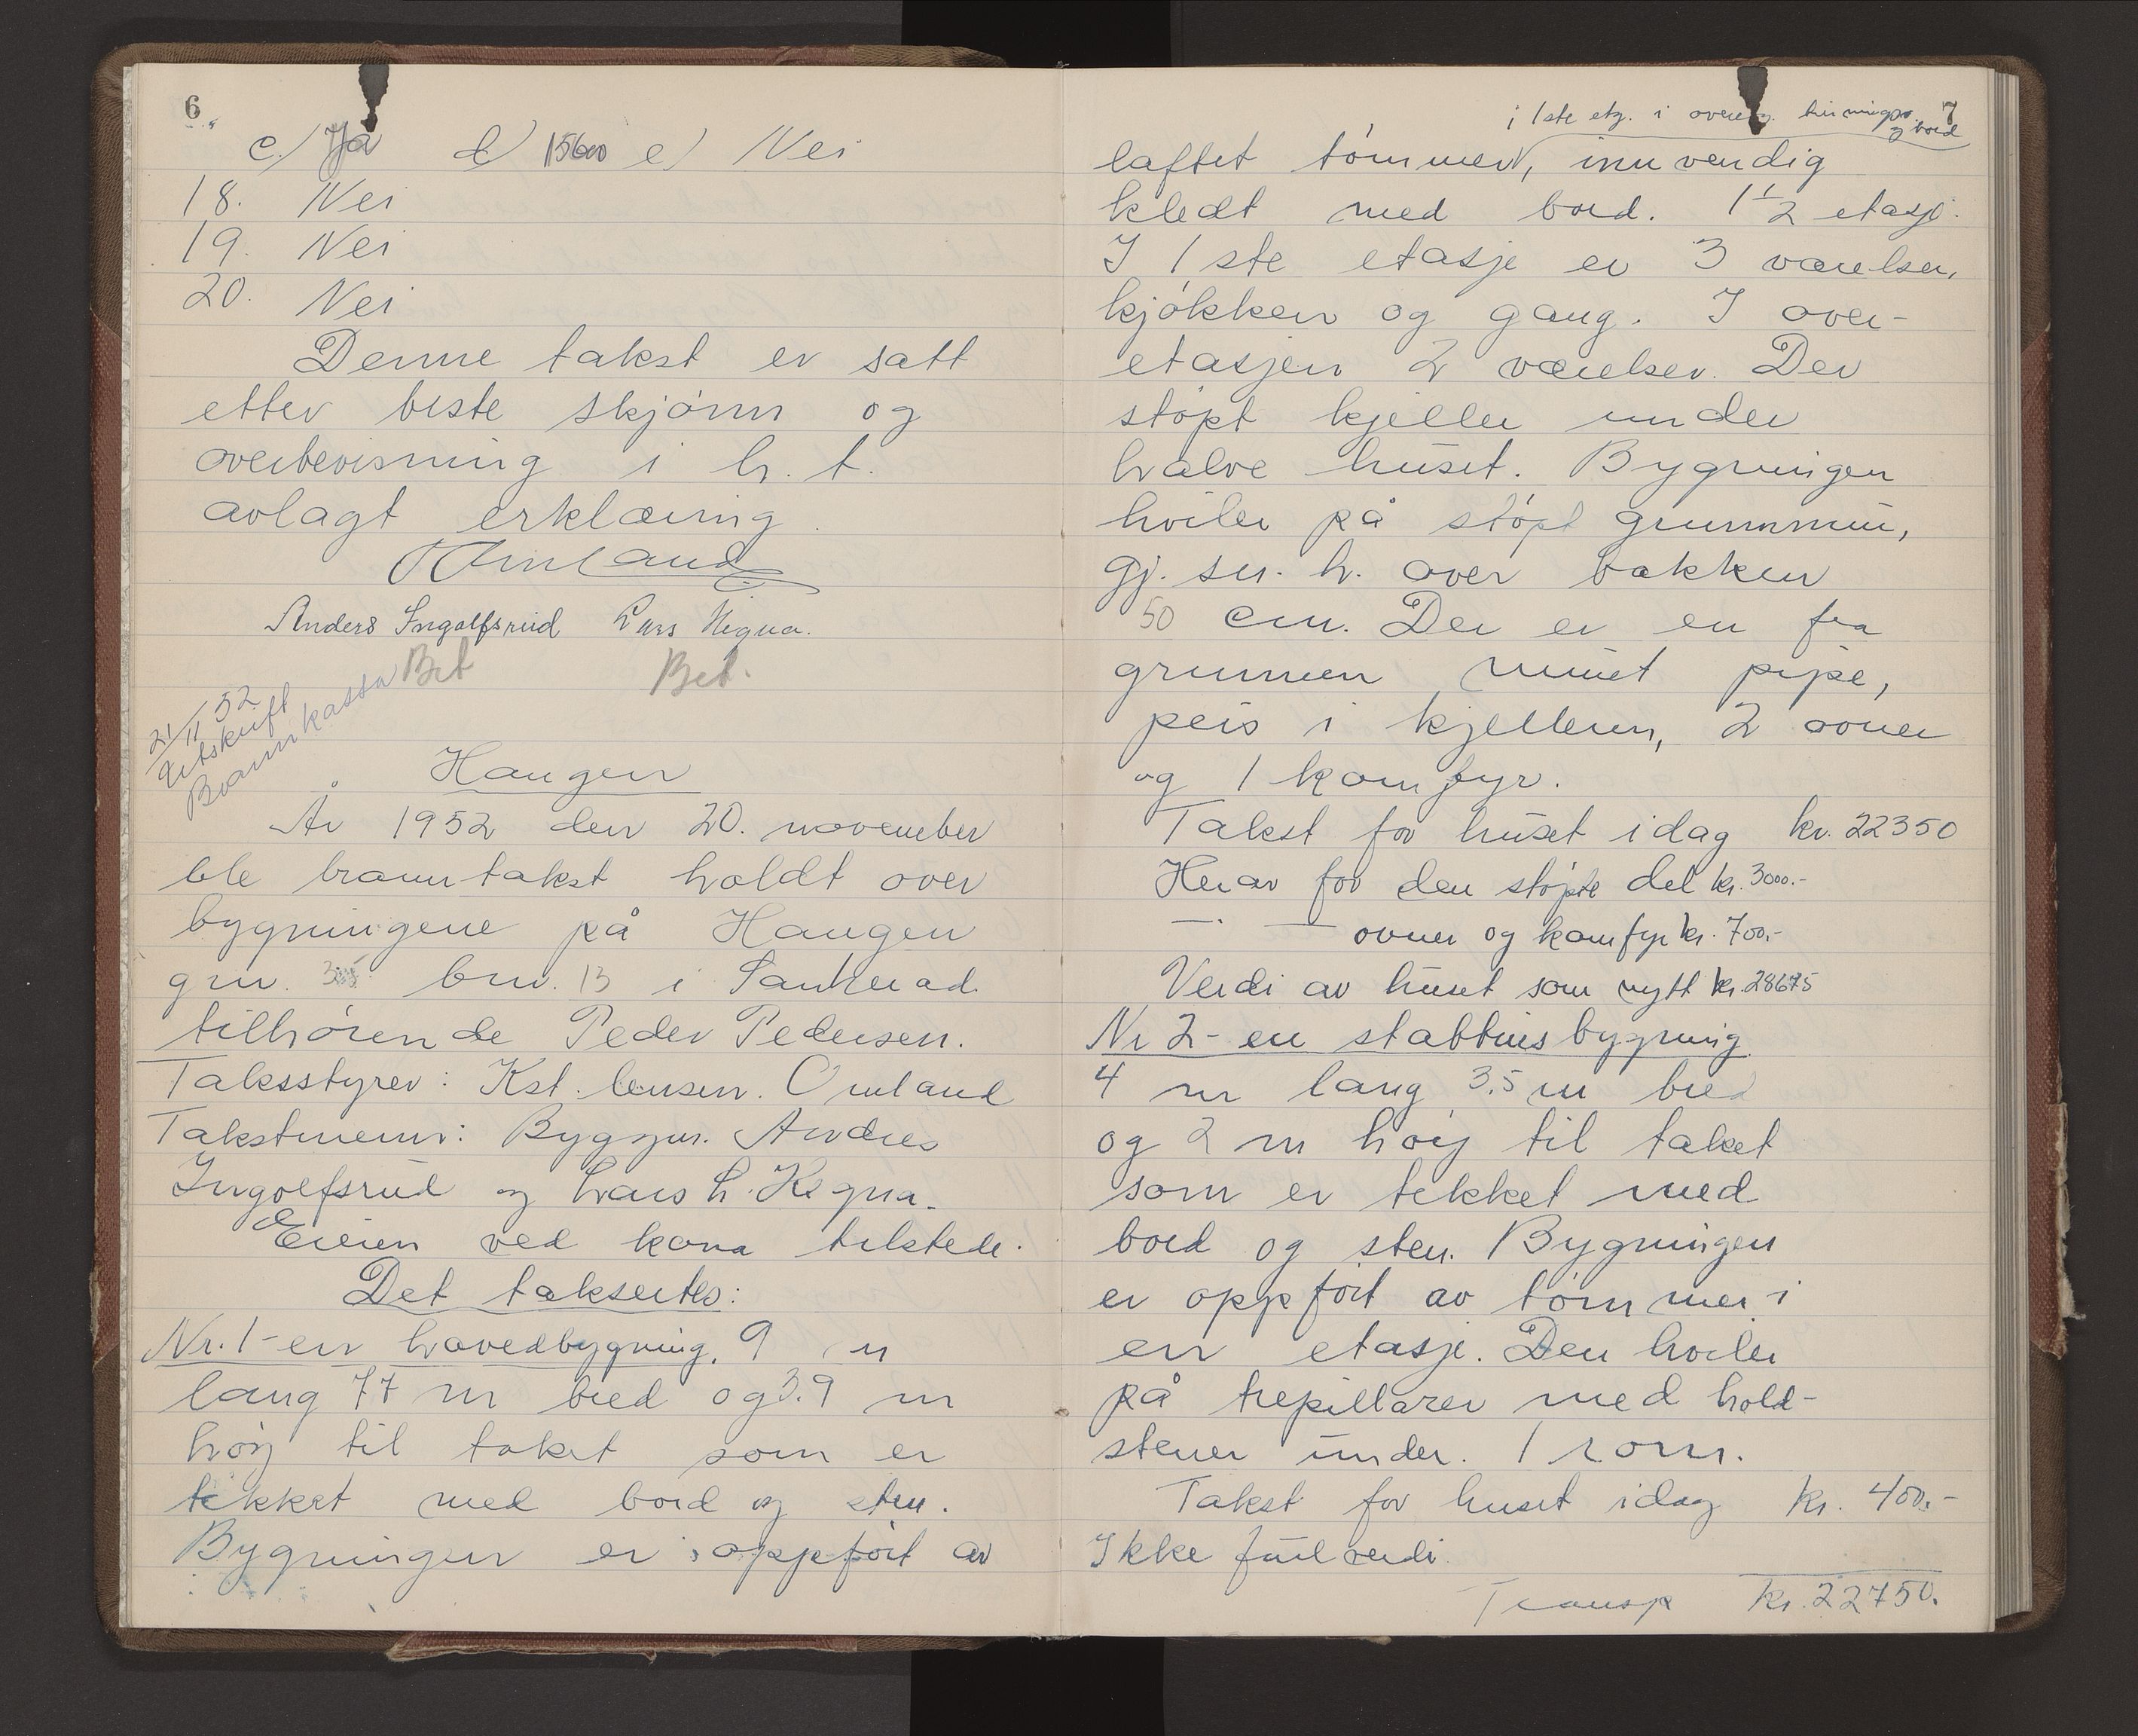 6
c) Ja d) 15600 e) Nei
18. Nei
19. Nei
20. Nei
Denne takst er satt
etter beste skjønn og
overbevisning i h. t.
avlagt erklæring.
Omland
Anders Ingolfsrud Lars Kigna.
Bet Bet.
21/11 52
Utskrift
Brannkassa
Haugen
År 1952 den 20. november
ble branntakst holdt over
bygningene på Haugen
gnr. bnr. 13 i Sauherad
tilhørende Peder Pedersen.
Taksstyrer: Kst. lensm. Omland
Takstmenn: Byggm. Andres
Ingolfsrud og Lars L. Kigna.
Eieren ved kona tilstede.
Det takseertes:
Nr. 1 - en hovedbygning, 9 m
lang 77 m bred og 3.9 m
høy til taket som er
tekket med bord og sten.
Bygningen er oppført av
7
i 1ste etg. i overetg. bord
laftet tømmer, innvendig
kledt med bord. 1 1/2 etasje.
I 1ste etasje er 3 værelser,
kjøkken og gang. I over-
etasjen 2 værelser. Der
støpt kjeller under
halve huset. Bygningen
hviler på støpt grunnmur,
gj. sn. h. over bakken
50 cm. Der er en fra
grunnen muret pipe,
peis i kjelleren, 2 ovner
og 1 komfyr.
Takst for huset idag kr. 22350
Herav for den støpte del kr. 3000.-
—"— ovner og komfyr kr. 700.-
Verdi av huset som nytt kr. 28675
Nr 2 - en stabbursbygning
4 m lang 3.5 m bred
og 2 m høy til taket
som er tekket med
bord og sten. Bygningen
er oppført av tømmer i
en etasje. Den hviler
på trepillarer med hold-
stener under. 1 rom.
Takst for huset idag kr. 400.-
Ikke full verdi.
Transp kr. 22750.